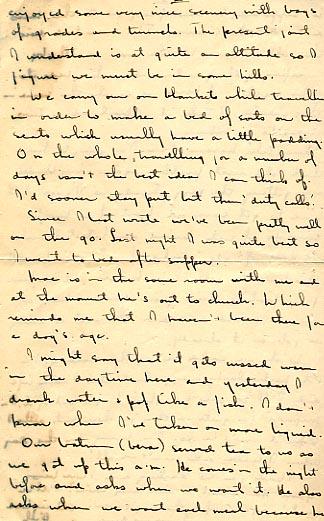 enjoyed some very nice scenery with bags
of grades and tunnels. The present joint
I understand is at quite an altitude so I
figure we must be in some hills.
We carry our own blankets while travelling
in order to make a bed of sorts on the
seats which usually have a little padding.
On the whole, travelling for a number of
days isn't the best idea I can think of.
I'd sooner stay put but then "duty calls".
Since I last wrote we've been pretty well
on the go. Last night I was quite beat so
I went to bed after supper.
Mac is in the same room with me and
at the moment he's out to church. Which
reminds me that I haven't been there for
a dog's age.
I might say that it gets warm
in the daytime here and yesterday I
drank water & pop like a fish. I don't
know when I've taken on more liquid.
Our batman (bearer) served tea to us as
we got up this a.m. He comes in the night
before and asks when we want it. He also
asks when we want each meal because he